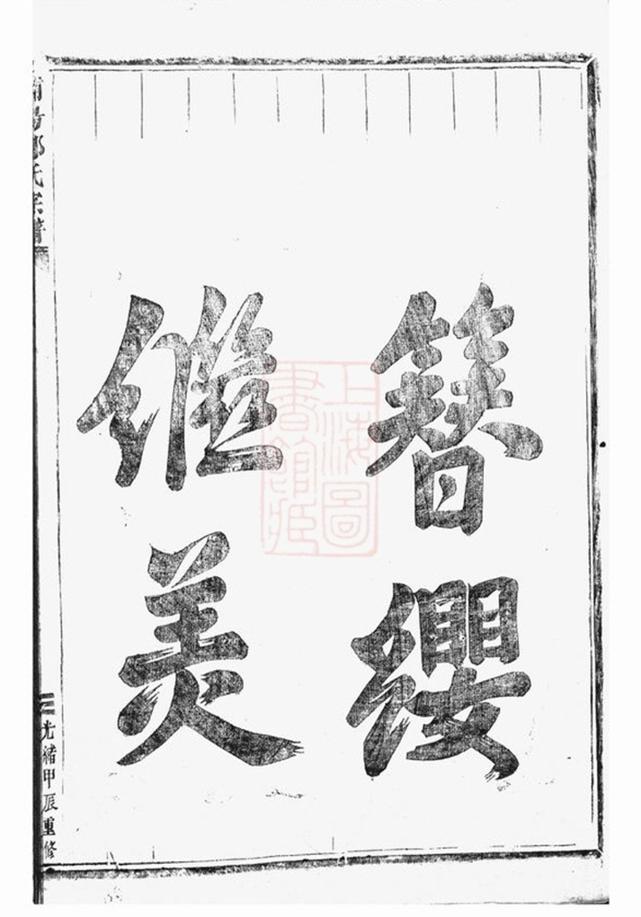 簪纓
繼美
陽鄭氏宗譜
光緒甲辰重修
上海圖
書館藏